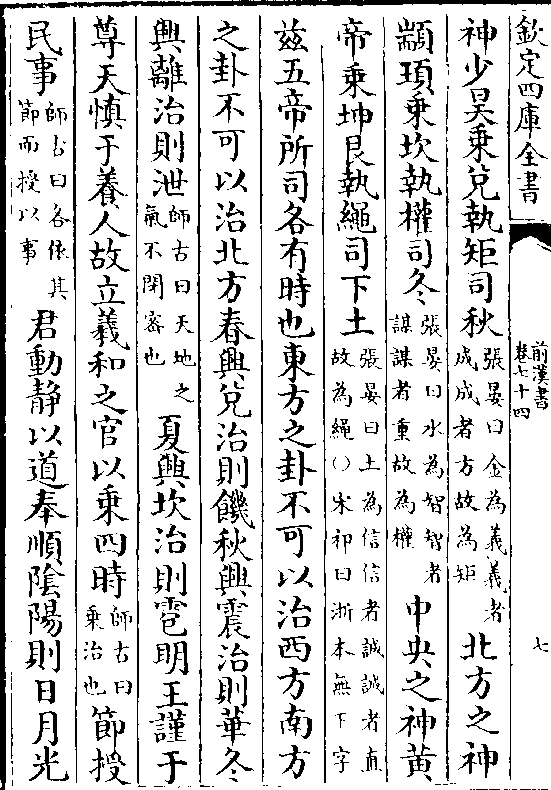 欽定四庫全書
前漢書
卷七十四
七
神少昊乗兊執矩司秋張晏曰金為義義者
成成者方故為矩北方之神
顓頊乗坎執權司冬張晏曰水為智智者
謀謀者重故為權中央之神黄
帝乗坤艮執繩司下土張晏曰土為信信者誠誠者直
故為繩()宋祁曰浙本無下字
兹五帝所司各有時也東方之卦不可以治西方南方
之卦不可以治北方春興兊治則饑秋興震治則華冬
興離治則泄師古曰天地之
氣不閉宻也夏興坎治則雹明王謹于
尊天慎于養人故立羲和之官以乗四時師古曰
乗治也節授
民事師古曰各依其
節而授以事君動静以道奉順隂陽則日月光